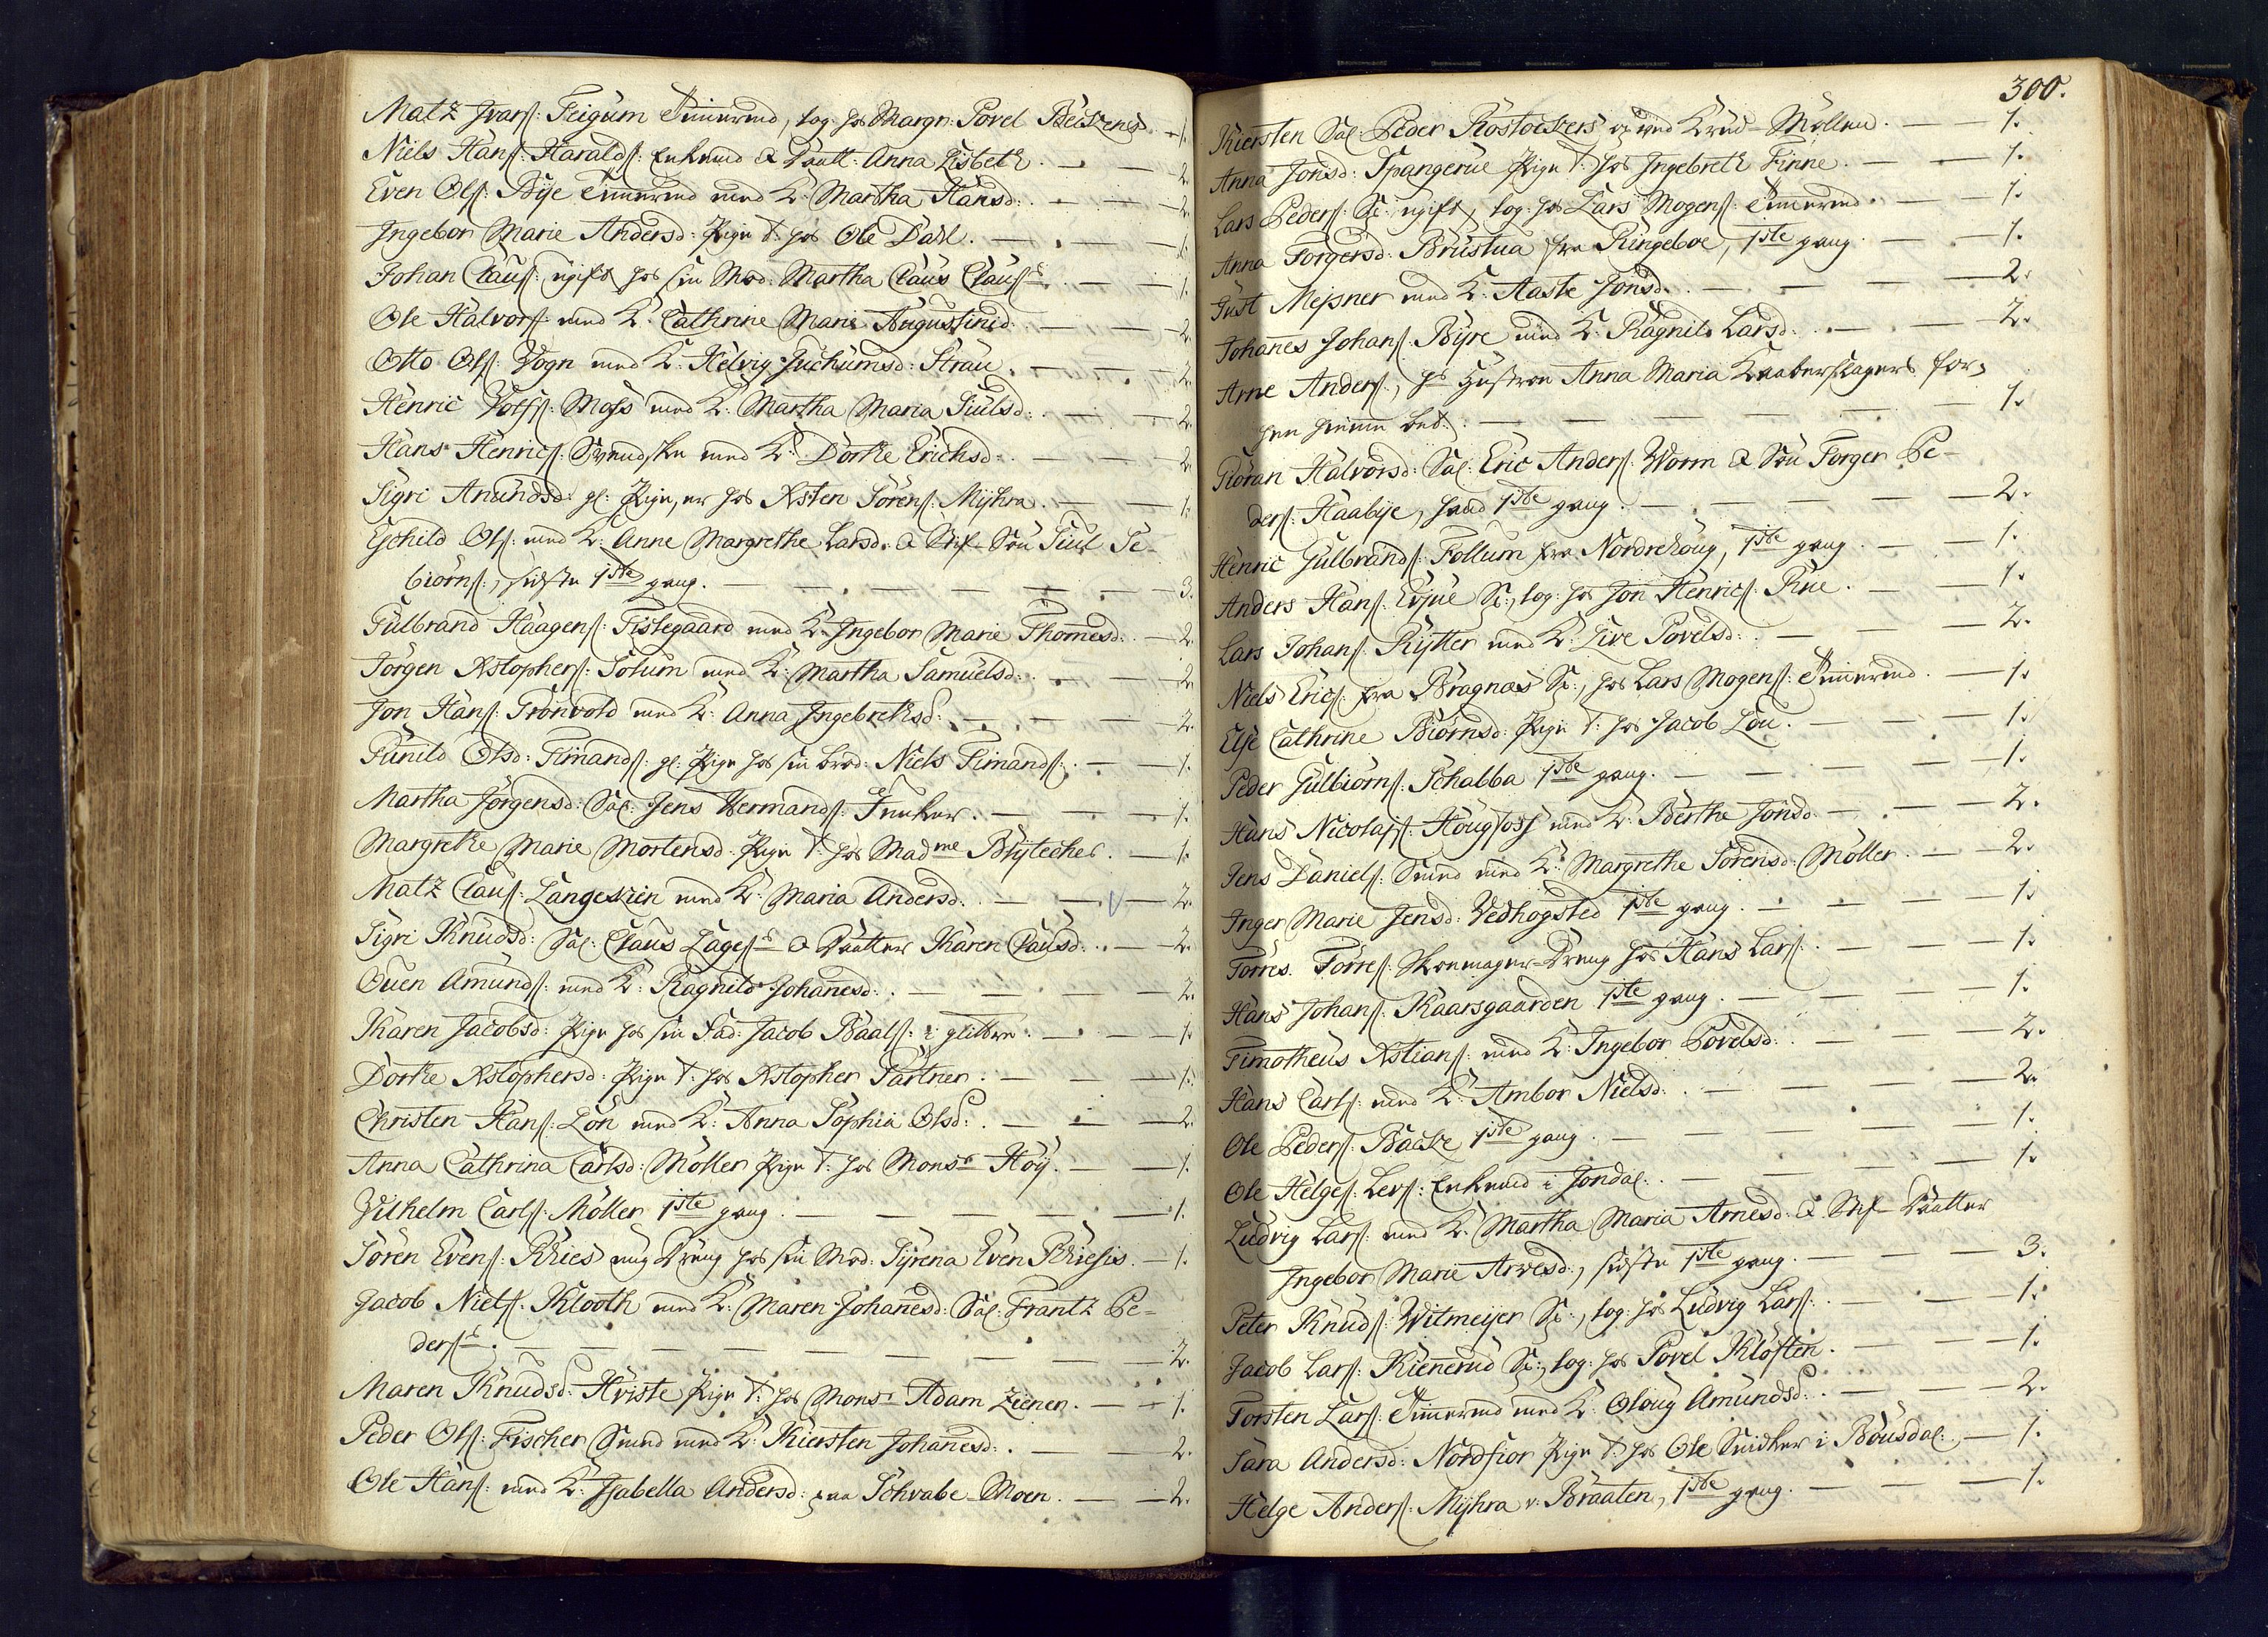 Matz Ivarſ: Feigum Tømmermd, log: hos Margr: Povel Beckens. — 1.
Niels Hanſ: Haraldſ: Enkemd & Daatt: Anna Lisbeth. — 2.
Even Olſ: Bye Tømmermd med K: Martha Hansd: — 2.
Ingebor Marie Andersd: Pige t: hos Ole Dahl. — 1.
Johan Clauſ: ugift hos sin Mod: Martha Claus Clauſens. — 1.
Ole Halvorſ: med K: Cathrine Marie Augustinisd: — 2.
Otto Olſ: Vogn med K: Helvig Juchumsd: Strau. — 2.
Henric Volfſ: Moſs med K: Martha Maria Siulsd: — 2.
Hans Henricſ: Svendske med K: Dorthe Erichsd: — 2.
Sigri Anundsd: gl: Pige, er hos Xsten Sørenſ: Myhra. — 1.
Eschild Olſ: med K: Anne Margrethe Larsd: & Stif-Søn Siul Te-
biörnſ:, sidste 1ste gang. — 3.
Gulbrand Haagenſ: Fistegaard med K: Ingebor Marie Thomesd: — 2.
Jørgen Xstopherſ: Solum med K: Martha Samuelsd: — 2.
Jon Hanſ: Grönvold med K: Anna Ingebrethsd: — 2.
Gunild Olsd: Timandſ: gl: Pige hos sin Brod: Niels Timandſ: — 1.
Martha Jørgensd: Sal: Jens Hermandſ: Funker. — 1.
Margrethe Marie Mortensd: Pige t: hos Madme Blytecher. — 1.
Matz Clauſ: Langeskien med K: Maria Andersd: — 2.
Sigri Knudsd: Sal: Claus Lageſens & Daatter Karen Clausd: — 2.
Ouen Amundſ: med K: Ragnild Johanesd: — 2.
Karen Jacobsd: Pige hos sin Fad: Jacob Paalſ: i Glittre. — 1.
Dorthe Xstophersd: Pige t: hos Xstopher Gartner. — 1.
Christen Hanſ: Lön med K: Anna Sophia Olsd: — 2.
Anna Cathrina Carlsd: Møller Pige t: hos Monsr Höy. — 1.
Vilhelm Carlſ: Møller 1ste gang. — 1.
Søren Evenſ: Riies ung Dreng hos sin Mod: Syrena Even Rieſis. — 1.
Jacob Nielſ: Klooth med K: Maren Johanesd: Sal: Frantz Pe-
derſens. — 2.
Maren Knudsd: Hviste Pige t: hos Monsr Adam Ziener. — 1.
Peder Olſ: Fischer Smed med K: Kiersten Johanesd: — 2.
Ole Hanſ: med K: Isabella Andersd: paa Schvabe-Moen. — 2.
300.
Kiersten Sal: Peder Rostockers oppe ved Krud-Møllen. — 1.
Anna Jonsd: Spangerüe Pige t: hos Ingebreth Finne. — 1.
Lars Pederſ: ugift, log: hos Lars Mogenſ: Tømmermd. — 1.
Anna Torgersd: Brustua fra Ringeboe, 1ste gang. — 1.
Just Mejsner med K: Aaste Jonsd: — 2.
Johanes Johanſ: Byre med K: Ragnild Larsd: — 2.
Arne Anderſ:, hs Hustroe Anna Maria Kaaberslagers for-
hen hieme bet: — 1.
Giöran Halvorsd: Sal: Eric Anderſ: Worm & Søn Torger Pe-
derſ: Haabye, hand 1ste gang. — 2.
Henric Gulbrandſ: Follum fra Nordrehoug, 1ste gang. — 1.
Anders Hanſ: Evjue log: hos Jon Henricſ: Rue. — 1.
Lars Johanſ: Rytter med K: Live Povelsd: — 2.
Niels Ericſ: fra Bragnæs hos Lars Mogenſ: Tømmermd. — 1.
Elſe Cathrine Biörnsd: Pige t: hos Jacob Lou. — 1.
Peder Gulbiörnſ: Schabba 1ste gang. — 1.
Hans Nicolajſ: Hougfoſs med K: Berthe Jonsd: — 2.
Jens Danielſ: Smed med K: Margrethe Sørensd: Møller. — 2.
Inger Marie Jensd: Vedhogsted 1ste gang. — 1.
Torres Torreſ: Skomager-Dreng hos Hans Larſ: — 1.
Hans Johanſ: Kaarsgaarden 1ste gang. — 1.
Timotheus Xstianſ: med K: Ingebor Povelsd: — 2.
Hans Carlſ: med K: Ambor Nielsd: — 2.
Ole Pederſ: Backe 1ste gang. — 1.
Ole Helgeſ: Lerſ: Enkemd i Jondal. — 1.
Ludvig Larſ: med K: Martha Maria Arnesd: & Stif-Daatter
Ingebor Marie Arvesd:, sidste 1ste gang. — 3.
Peter Knudſ: Witmeijer log: hos Ludvig Larſ: — 1.
Jacob Larſ: Kienerud log: hos Povel Klöften. — 1.
Torsten Larſ: Tømmermd med K: Oloug Amundsd: — 2.
Sara Andersd: Nordfior Pige t: hos Ole Snidker i Bousdal: — 1.
Helge Anderſ: Myhra v: Braaten, 1ste gang. — 1.